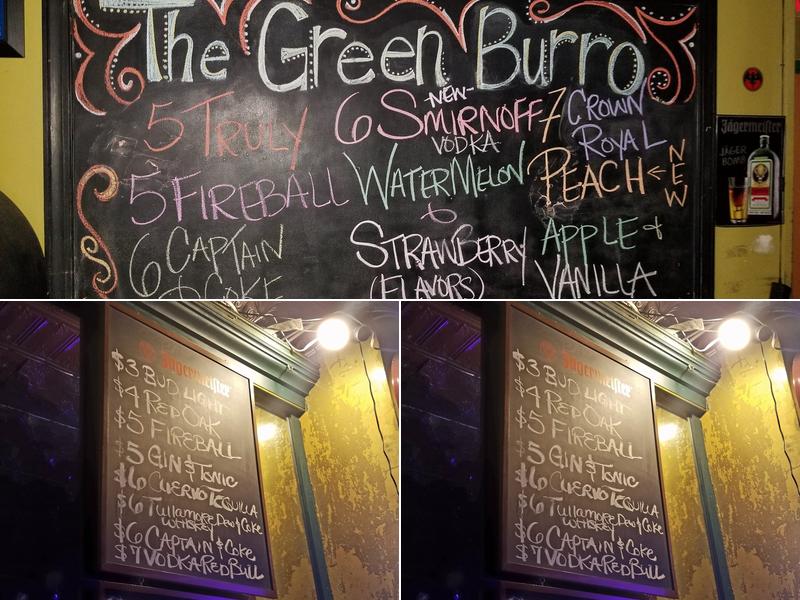 The Green Burro
5 TRULY
5 FIREBALL
6 CAPTAIN
& COKE
6 SMIRNOFF
-NEW-
VODKA
WATERMELON
&
STRAWBERRY
(FLAVORS)
7 CROWN
ROYAL
PEACH ← NEW
APPLE &
VANILLA
Jägermeister
JÄGER
BOMB
Jägermeister
$3 BUD LIGHT
$4 RED OAK
$5 FIREBALL
$5 GIN & TONIC
$6 CUERVO TEQUILA
$6 Tullamore Dew & Coke
WHISKEY
$6 CAPTAIN & Coke
$7 VODKA RED BULL
Jägermeister
$3 BUD LIGHT
$4 RED OAK
$5 FIREBALL
$5 GIN & TONIC
$6 CUERVO TEQUILA
$6 Tullamore Dew & Coke
WHISKEY
$6 CAPTAIN & Coke
$7 VODKA RED BULL